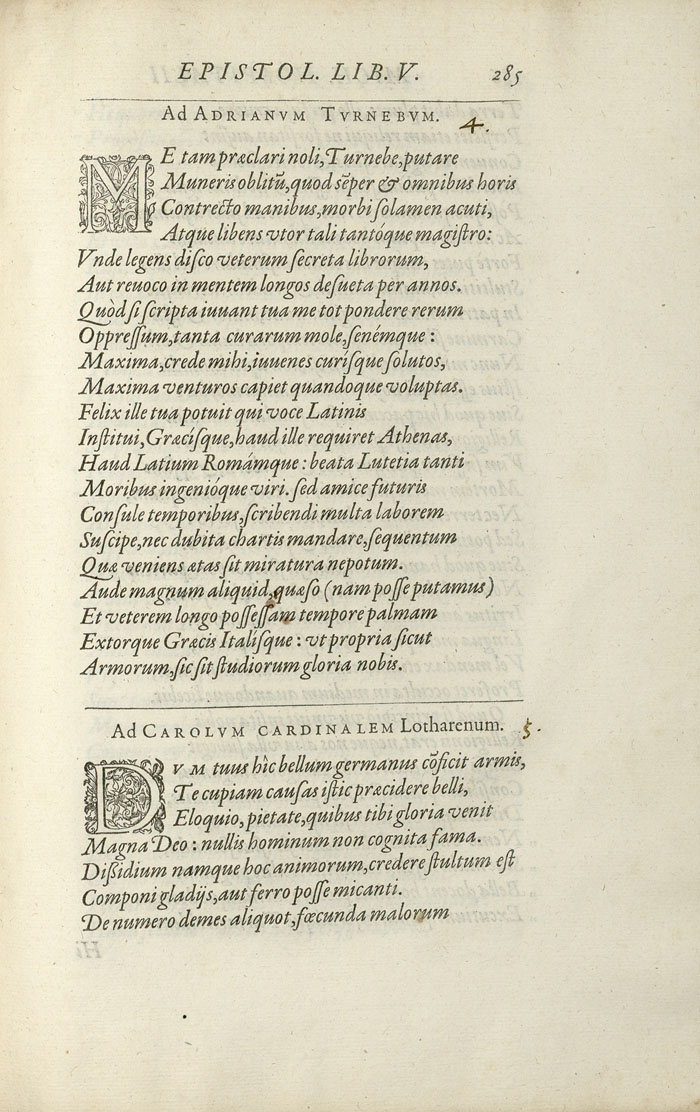 EPISTOL. LIB. V. 285
Ad ADRIANVM TVRNEBVM. 4.
ME tam præclari noli, Turnebe, putare
Muneris oblitũ, quod sẽper & omnibus horis
Contrecto manibus, morbi ſolamen acuti,
Atque libens vtor tali tantóque magiſtro:
Vnde legens diſco veterum ſecreta librorum,
Aut reuoco in mentem longos deſueta per annos.
Quòd ſi ſcripta iuuant tua me tot pondere rerum
Oppreſſum, tanta curarum mole, ſenémque:
Maxima, crede mihi, iuuenes curíſque ſolutos,
Maxima venturos capiet quandoque voluptas.
Felix ille tua potuit qui voce Latinis
Inſtitui, Græcíſque, haud ille requiret Athenas,
Haud Latium Romámque: beata Lutetia tanti
Moribus ingenióque viri. ſed amice futuris
Conſule temporibus, ſcribendi multa laborem
Suſcipe, nec dubita chartis mandare, ſequentum
Quæ veniens ætas ſit miratura nepotum.
Aude magnum aliquid, quæſo (nam poſſe putamus)
Et veterem longo poſſeſſam tempore palmam
Extorque Græcis Italiſque: vt propria ſicut
Armorum, ſic ſit ſtudiorum gloria nobis.
Ad CAROLVM CARDINALEM Lotharenum. 5.
DVM tuus hìc bellum germanus cõficit armis,
Te cupiam cauſas iſtic præcidere belli,
Eloquio, pietate, quibus tibi gloria venit
Magna Deo: nullis hominum non cognita fama.
Diſsidium namque hoc animorum, credere ſtultum eſt
Componi gladijs, aut ferro poſſe micanti.
De numero demes aliquot, fœcunda malorum